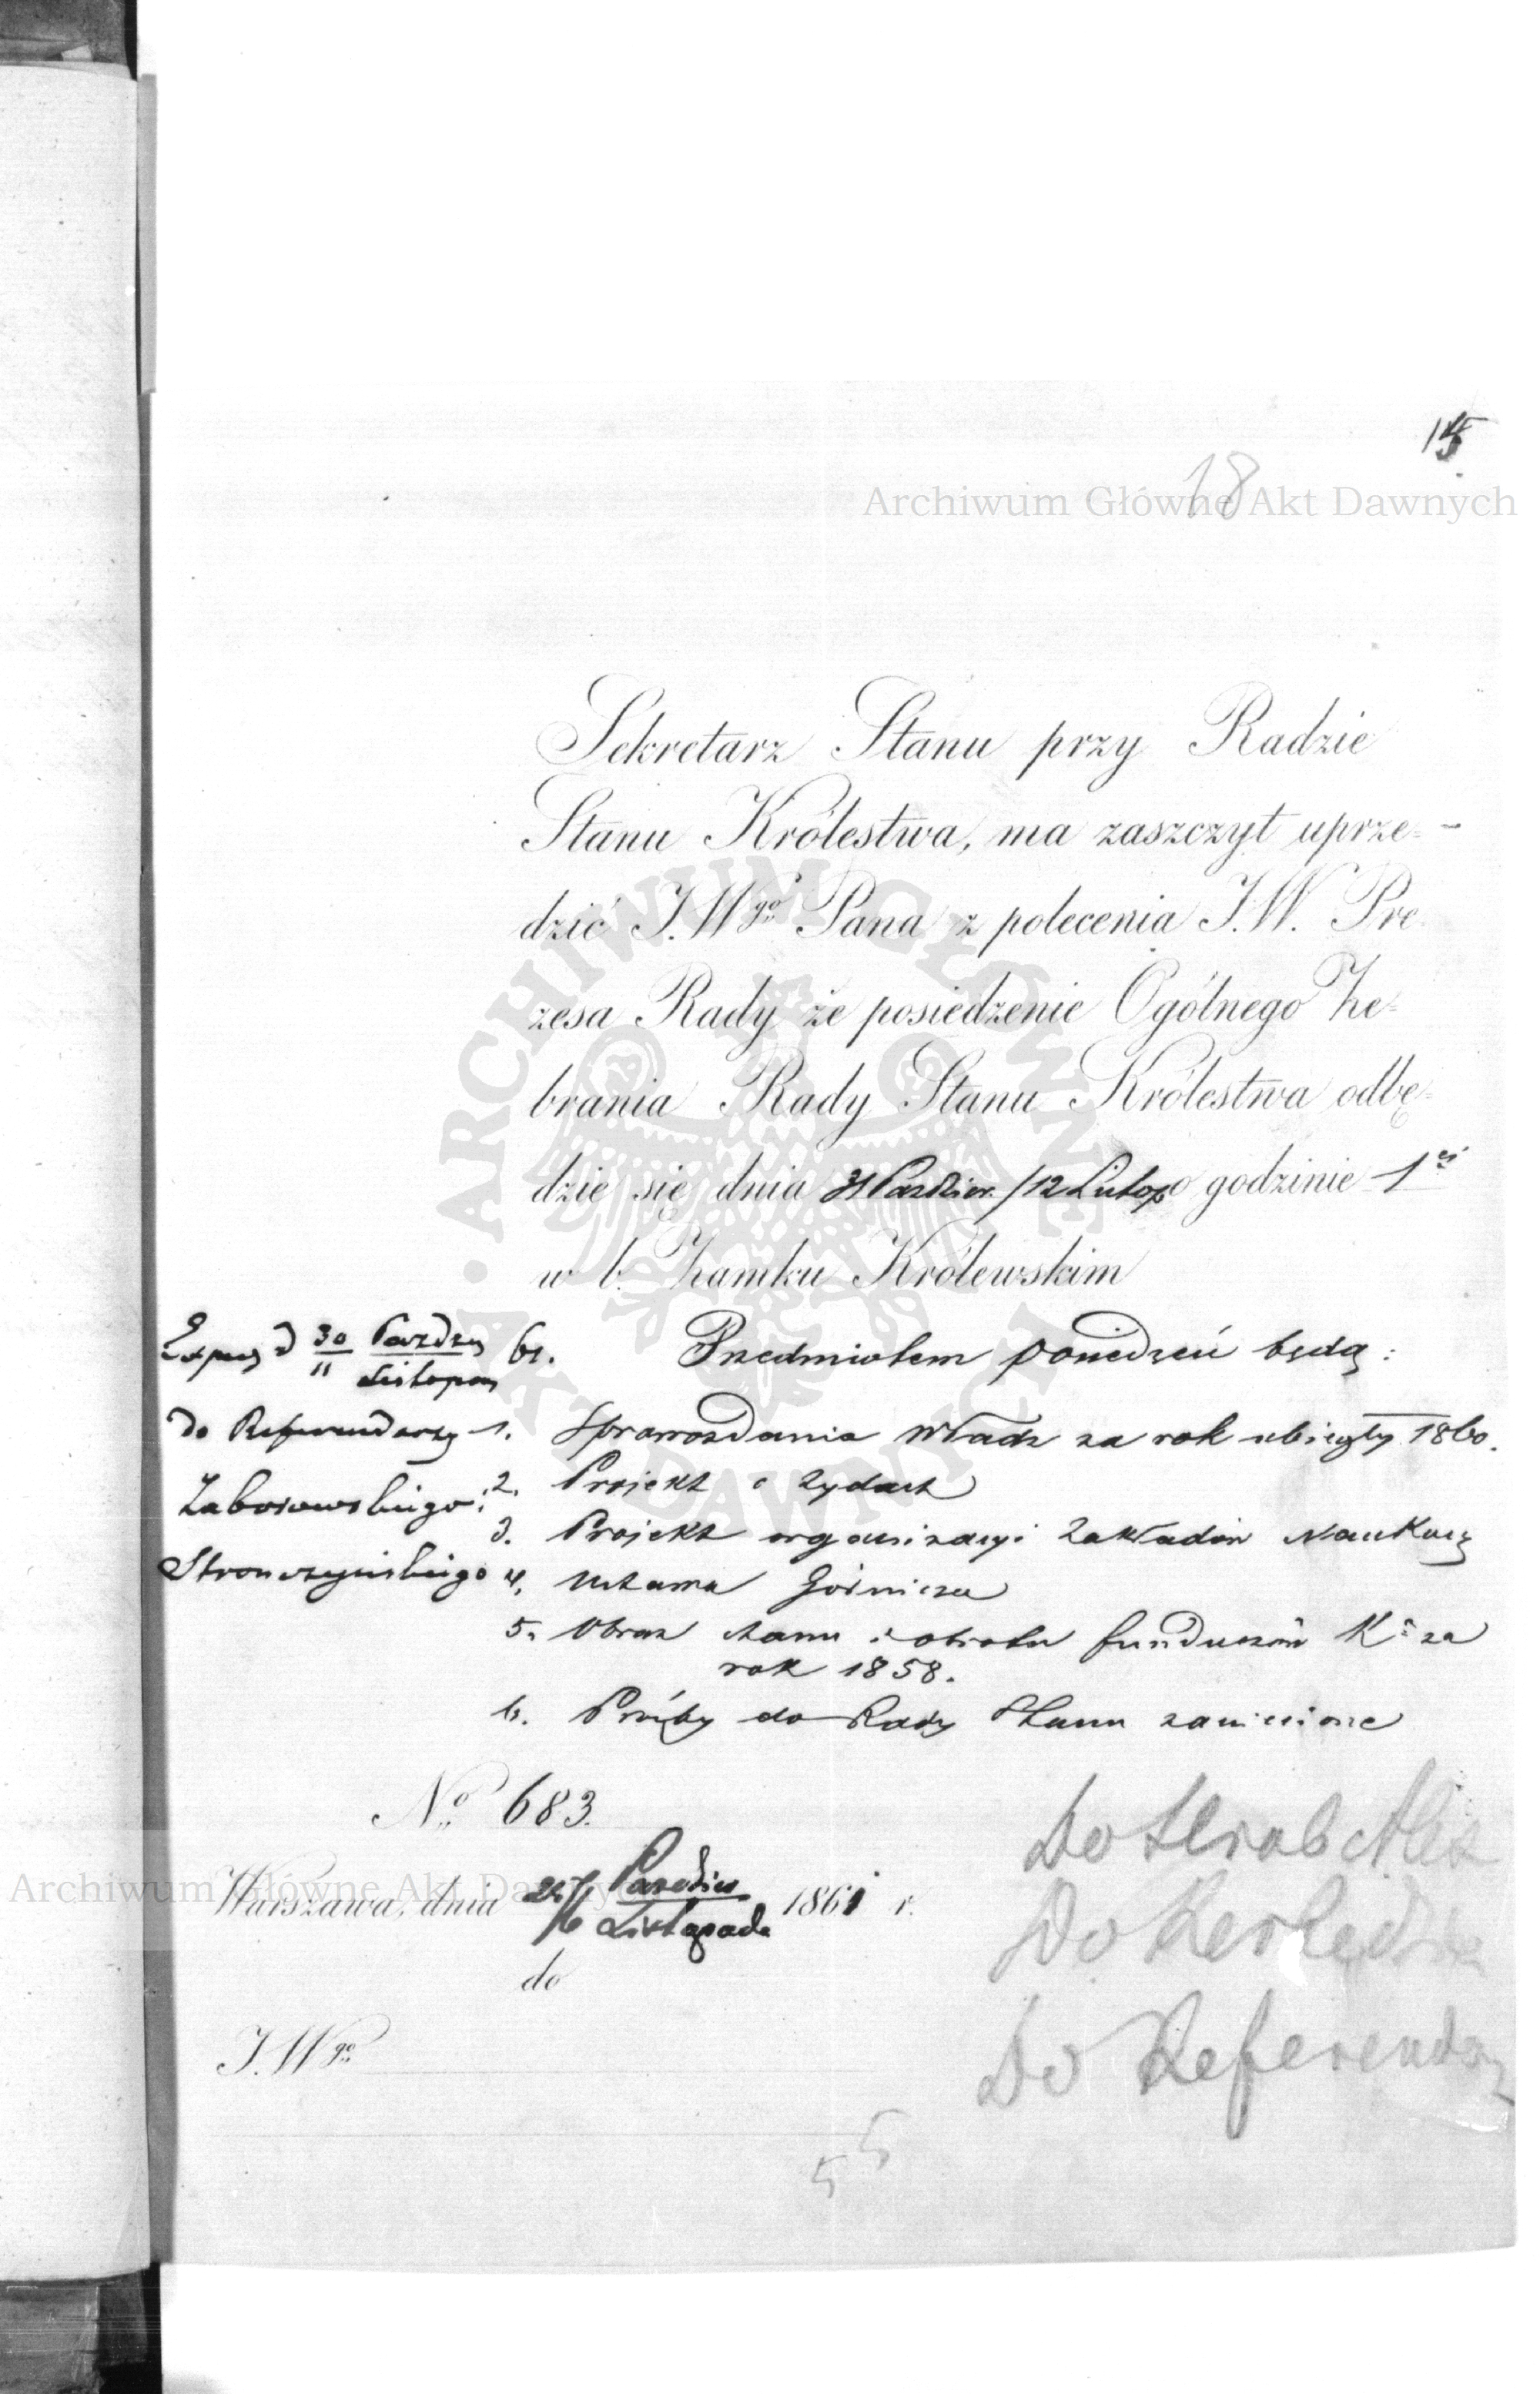 15
18
Archiwum Główne Akt Dawnych
Sekretarz Stanu przy Radzie
Stanu Królestwa, ma zaszczyt uprze=
dzić J.W^go Pana z polecenia J.W. Pre
zesa Rady że posiedzenie Ogólnego Ze=
brania Rady Stanu Królestwa odbę=
dzie się dnia 31 Paździer. / 12 Listop o godzinie 1^ej
w b. Zamku Królewskim
30 Paźdzr 61.
11 Listopa
Przedmiotem posiedzeń będą:
do Referendarzy
Zaborowskiego
Stronczyńskiego
1. Sprawozdania Władz za rok ubiegły 1860.
2. Projekt o Żydach
3. Projekt organizacyi Zakładów Naukowy
4. Ustawa Górnicza
5. Obraz stanu i obrotu funduszów K^a za
rok 1858.
6. Prośby do Rady Stanu zaniesione
№ 683.
Archiwum Główne Akt Dawnych
Warszawa, dnia 25/6 Paździer Listopada 1861 r.
do
J.W^go
Do Hrab Alex
Do
Do Referendrz
5 5
ARCHIWUM GŁÓWNE AKT DAWNYCH